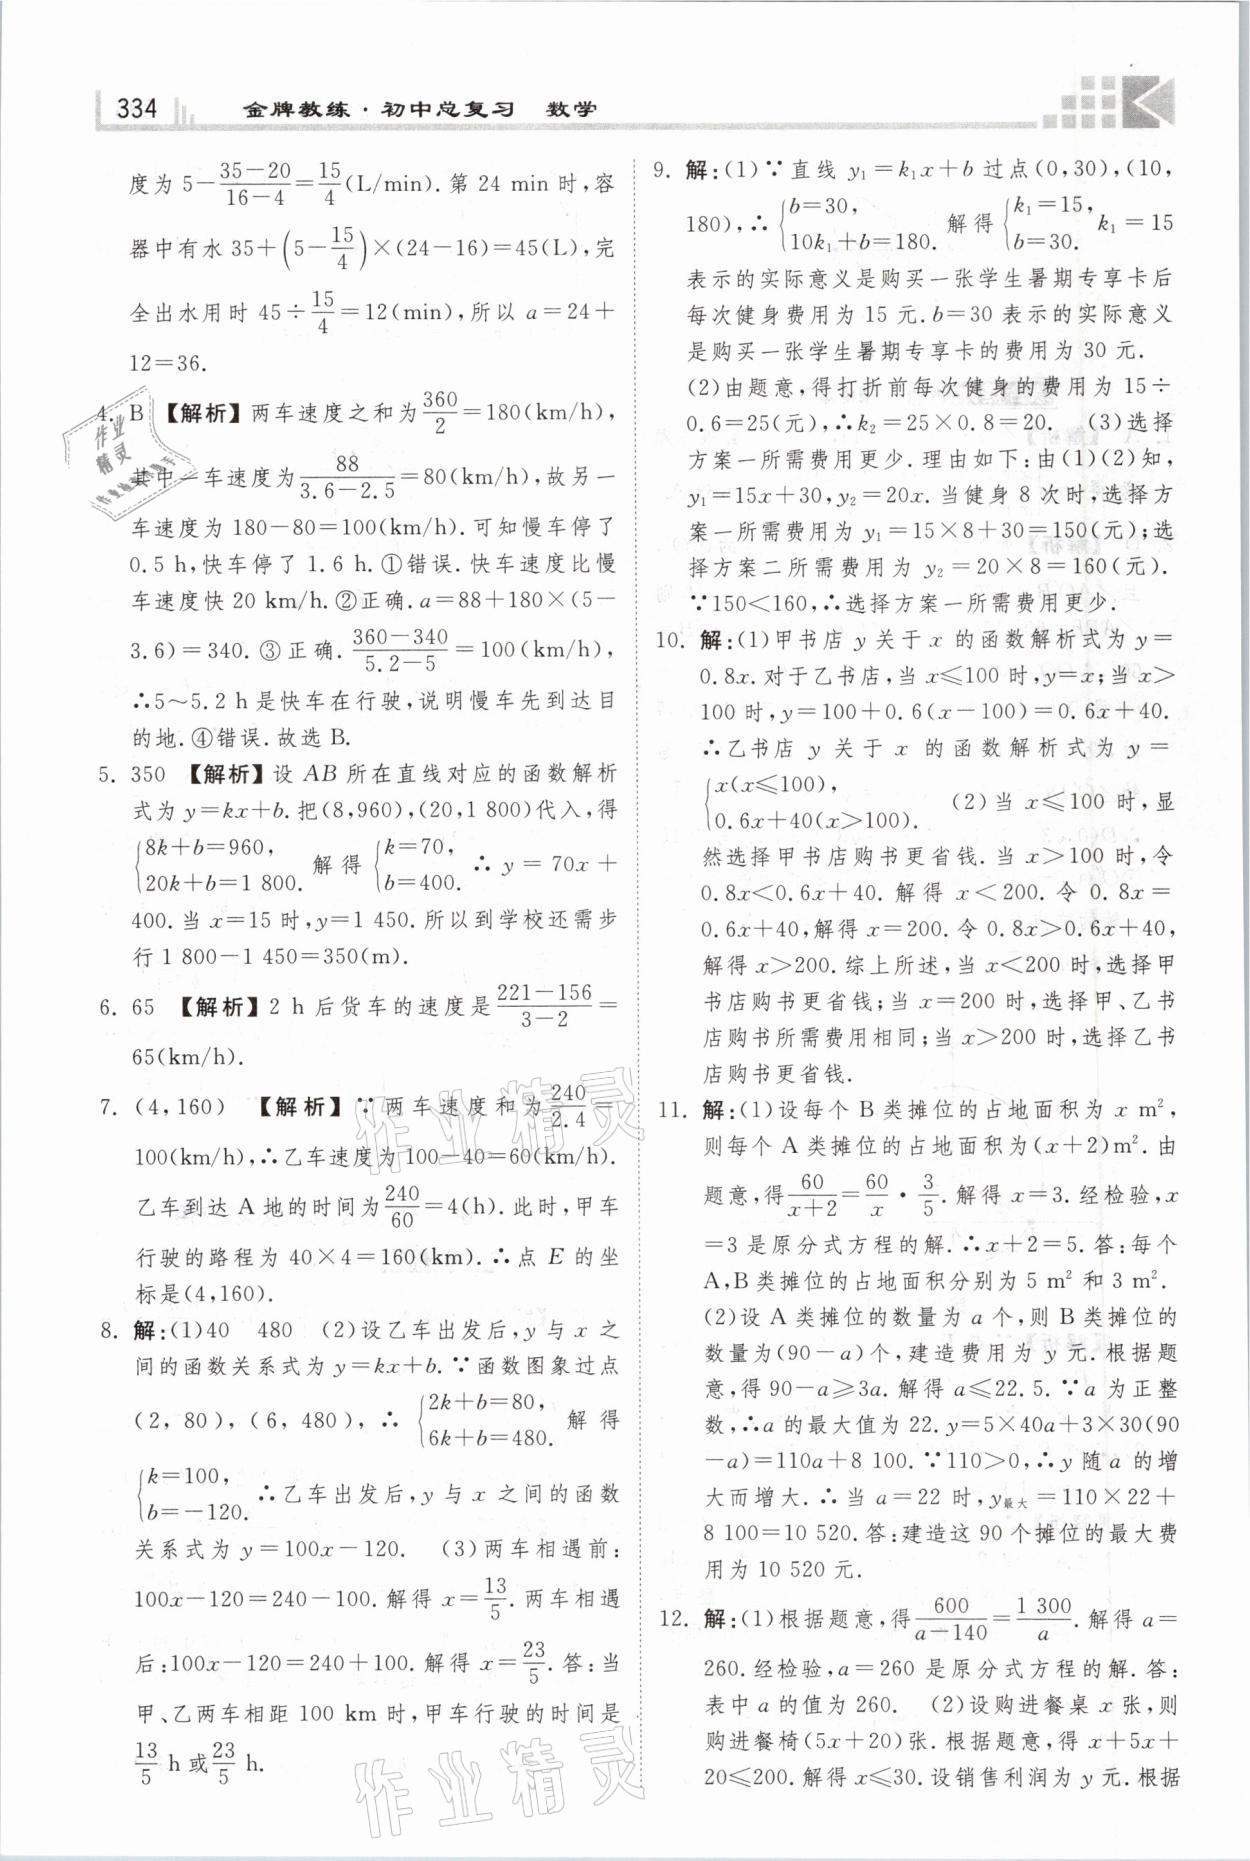 334 金牌教练·初中总复习 数学
度为 5-\frac{35-20}{16-4}=\frac{15}{4}(L/min).第 24 min 时,容
器中有水 35+(5-\frac{15}{4})×(24-16)=45(L),完
全出水用时 45÷\frac{15}{4}=12(min),所以 a=24+
12=36.
4. B 【解析】两车速度之和为\frac{360}{2}=180(km/h),
其中一车速度为\frac{88}{3.6-2.5}=80(km/h),故另一
车速度为 180-80=100(km/h).可知慢车停了
0.5 h,快车停了 1.6 h.①错误.快车速度比慢
车速度快 20 km/h.②正确.a=88+180×(5-
3.6)=340.③正确.\frac{360-340}{5.2-5}=100(km/h),
∴5~5.2 h 是快车在行驶,说明慢车先到达目
的地.④错误.故选 B.
5. 350 【解析】设 AB 所在直线对应的函数解析
式为 y=kx+b.把(8,960),(20,1 800)代入,得
{8k+b=960, 20k+b=1 800. 解得 {k=70, b=400. ∴ y=70x+
400.当 x=15 时,y=1 450.所以到学校还需步
行 1 800-1 450=350(m).
6. 65 【解析】2 h 后货车的速度是\frac{221-156}{3-2}=
65(km/h).
7. (4,160) 【解析】∵两车速度和为\frac{240}{2.4}=
100(km/h),∴乙车速度为 100-40=60(km/h).
乙车到达 A 地的时间为\frac{240}{60}=4(h).此时,甲车
行驶的路程为 40×4=160(km).∴点 E 的坐
标是(4,160).
8. 解:(1)40 480 (2)设乙车出发后,y 与 x 之
间的函数关系式为 y=kx+b.∵函数图象过点
(2,80),(6,480),∴ {2k+b=80, 6k+b=480. 解得
{k=100, b=-120. ∴乙车出发后,y 与 x 之间的函数
关系式为 y=100x-120. (3)两车相遇前:
100x-120=240-100.解得 x=\frac{13}{5}.两车相遇
后:100x-120=240+100.解得 x=\frac{23}{5}.答:当
甲、乙两车相距 100 km 时,甲车行驶的时间是
\frac{13}{5} h 或\frac{23}{5} h.
9. 解:(1)∵直线 y₁=k₁x+b 过点(0,30),(10,
180),∴ {b=30, 10k₁+b=180. 解得 {k₁=15, b=30. k₁=15
表示的实际意义是购买一张学生暑期专享卡后
每次健身费用为 15 元.b=30 表示的实际意义
是购买一张学生暑期专享卡的费用为 30 元.
(2)由题意,得打折前每次健身的费用为 15÷
0.6=25(元),∴k₂=25×0.8=20. (3)选择
方案一所需费用更少.理由如下:由(1)(2)知,
y₁=15x+30,y₂=20x.当健身 8 次时,选择方
案一所需费用为 y₁=15×8+30=150(元);选
择方案二所需费用为 y₂=20×8=160(元).
∵150<160,∴选择方案一所需费用更少.
10. 解:(1)甲书店 y 关于 x 的函数解析式为 y=
0.8x.对于乙书店,当 x≤100 时,y=x;当 x>
100 时,y=100+0.6(x-100)=0.6x+40.
∴乙书店 y 关于 x 的函数解析式为 y=
{x(x≤100), 0.6x+40(x>100). (2)当 x≤100 时,显
然选择甲书店购书更省钱.当 x>100 时,令
0.8x<0.6x+40.解得 x<200.令 0.8x=
0.6x+40,解得 x=200.令 0.8x>0.6x+40,
解得 x>200.综上所述,当 x<200 时,选择甲
书店购书更省钱;当 x=200 时,选择甲、乙书
店购书所需费用相同;当 x>200 时,选择乙书
店购书更省钱.
11. 解:(1)设每个 B 类摊位的占地面积为 x m²,
则每个 A 类摊位的占地面积为(x+2)m².由
题意,得\frac{60}{x+2}=\frac{60}{x}·\frac{3}{5}.解得 x=3.经检验,x
=3 是原分式方程的解.∴x+2=5.答:每个
A,B 类摊位的占地面积分别为 5 m² 和 3 m².
(2)设 A 类摊位的数量为 a 个,则 B 类摊位的
数量为(90-a)个,建造费用为 y 元.根据题
意,得 90-a≥3a.解得 a≤22.5.∵a 为正整
数,∴a 的最大值为 22.y=5×40a+3×30(90
-a)=110a+8 100.∵110>0,∴y 随 a 的增
大而增大.∴当 a=22 时,y最大=110×22+
8 100=10 520.答:建造这 90 个摊位的最大费
用为 10 520 元.
12. 解:(1)根据题意,得\frac{600}{a-140}=\frac{1 300}{a}.解得 a=
260.经检验,a=260 是原分式方程的解.答:
表中 a 的值为 260. (2)设购进餐桌 x 张,则
购进餐椅(5x+20)张.根据题意,得 x+5x+
20≤200.解得 x≤30.设销售利润为 y 元.根据
作业精灵
作业精灵
作业精灵